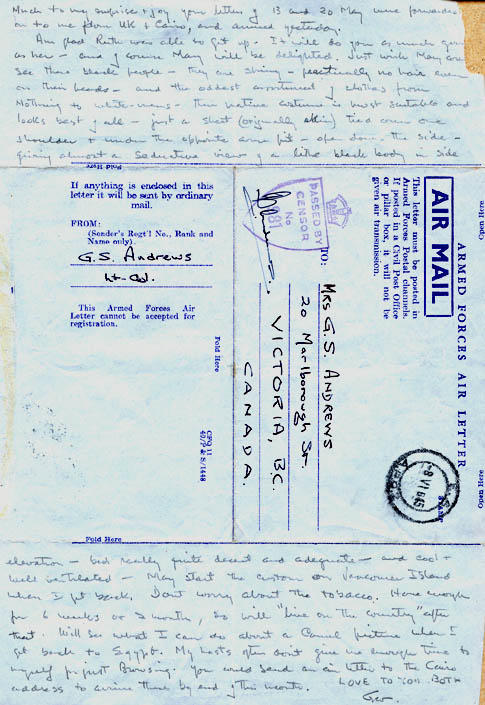 Much to my surprise + joy your letters of 13 and 20 May were forwarded
on to me from UK + Cairo, and arrived yesterday.
Am glad Ruth was able to get up. It will do you as much good
as her - and of course Mary will be delighted. Just wish Mary could
see these black people - they are shiny - practically no hair even
on their heads - and the oddest assortment of clothes from
Nothing to white-mans - their native costume is most suitable and
looks best of all - just a sheet (originally skin) tied over one
shoulder + under the opposite arm pit - open down the side -
giving almost a seductive view of a lithe black body in side
If anything is enclosed in this
letter it will be sent by ordinary
mail.
FROM:
(Sender's Regt'l No., Rank and
Name only).
G.S. Andrews
Lt-Col.
This Armed Forces Air
Letter cannot be accepted for
registration.
Fold Here
Fold Here
PASSED BY
CENSOR
No
TO:
MRS G. S. ANDREWS
20 Marlborough St
VICTORIA, B.C.
CANADA.
AIR MAIL
ARMED FORCES AIR LETTER
This letter must be posted in
Armed Forces Postal channels.
If posted in a Civil Post Office
or pillar box, it will not be
given air transmission.
Open Here
Open Here
elevation - but really quite decent and adequate - and cool +
well ventilated - May start the custom on Vancouver Island
when I get back. Dont worry about the tobacco. Have enough
for 6 weeks or 2 month, so will "live on the country" after
that. Will see what I can do about a Camel picture when I
get back to Egypt. My hosts often dont give me enough time to
myself for just Browsing. You could send an air letter to the Cairo
address to arrive there by end of this month. LOVE TO YOU BOTH
Ger.